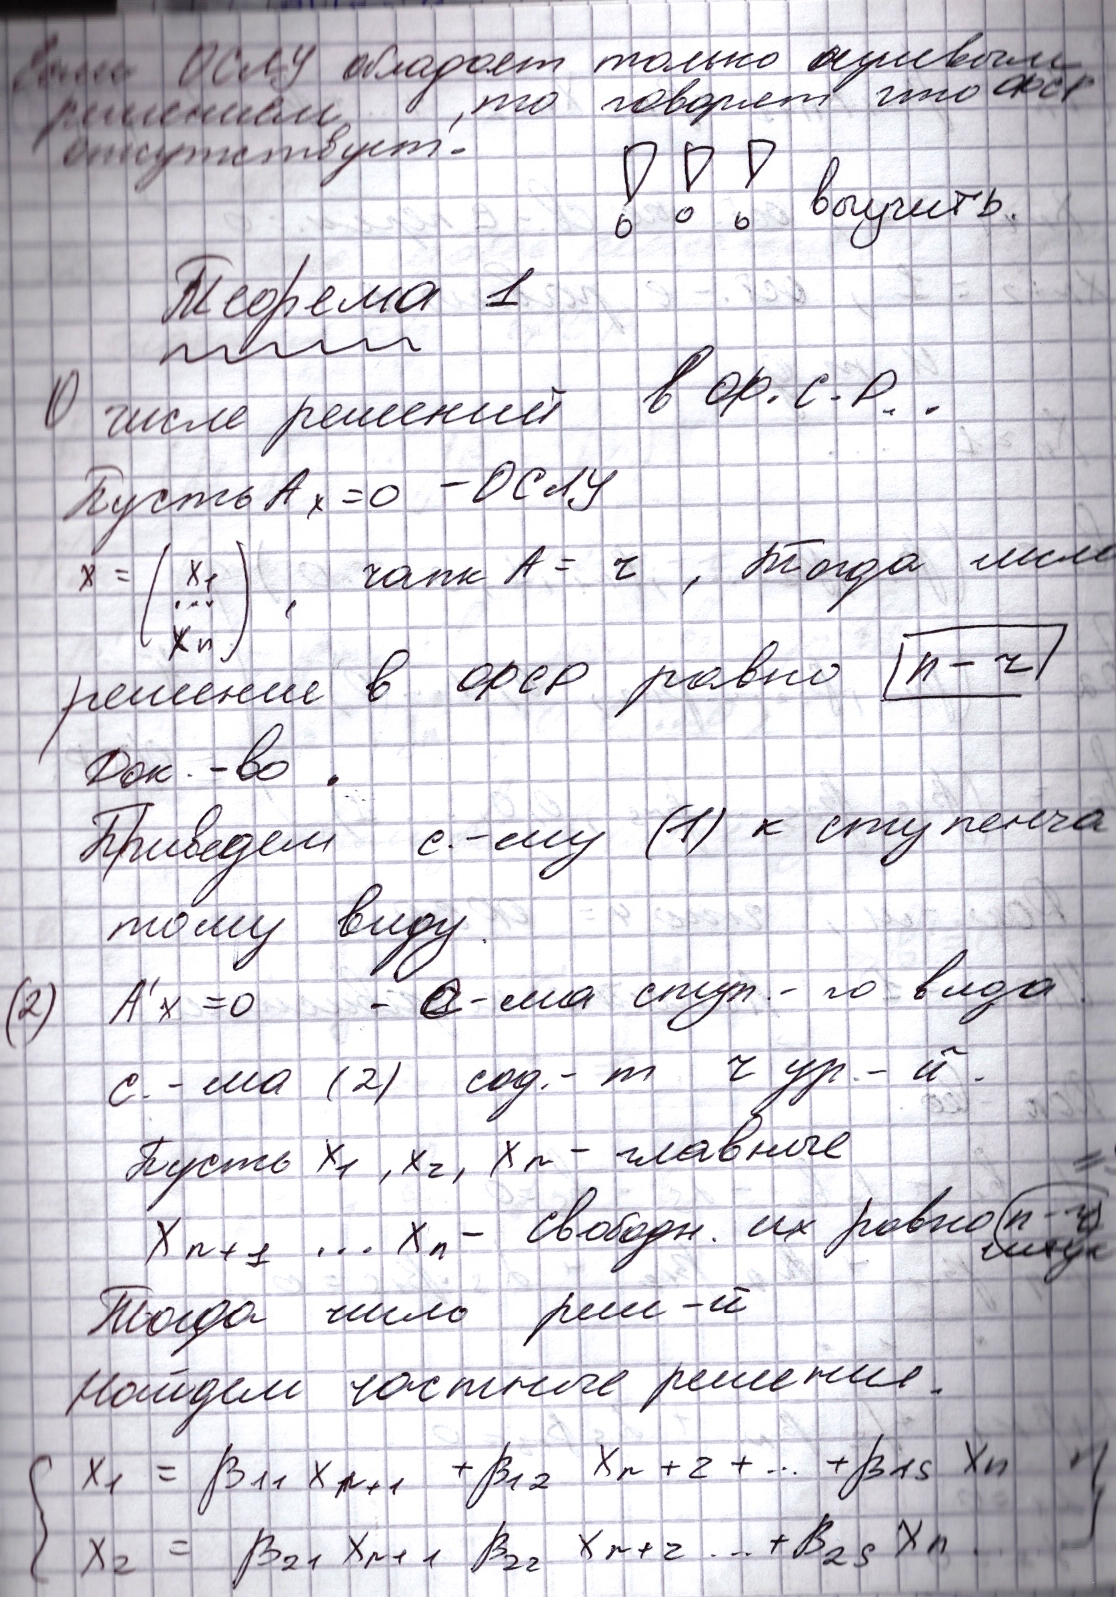 Если ОСЛУ обладает только нулевым
решением, то говорят что ФСР
отсутствует.
!!! выучить.
Теорема 1
О числе решений в ф.с.р.
Пусть Ax = 0 - ОСЛУ
x = (x1 ... xn), ранк A = r, Тогда число
решение в ФСР равно n - r
Док.-во.
Приведем с.-му (1) к ступенча
тому виду.
(2) A'x = 0 - с-ма ступ.-го вида.
с.-ма (2) сод.-т r ур.-й.
Пусть x1, x2, xr - главные
xr+1 ... xn - свободн. их равно n-r штук
Тогда число реш-й
Найдем частные решение.
x1 = β11 xr+1 + β12 xr+2 + ... + β1s xn
x2 = β21 xr+1 β22 xr+2 ... + β2s xn ....